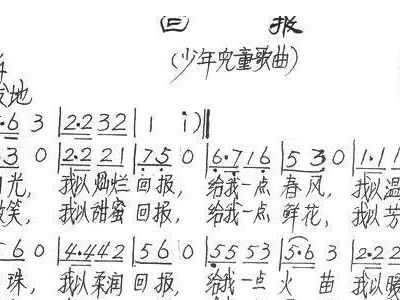 回 报
(少年儿童歌曲)
地
6 3 | 2·2 3 2 | 1 i) ‖
3 0 | 2·2 2 1 | 7 5 0 | 6·7 1 6 | 5 3 0 | 1·1
光， 我以灿烂 回报， 给我一点 春风， 我以温
笑， 我以甜蜜 回报， 给我一点 鲜花， 我以芳
5 6 0 | 4·4 4 2 | 5 6 0 | 5 5 5 3 | 5·6 3 | 2·2 2
珠， 我以柔润 回报， 给我一点 火 苗 我以暖